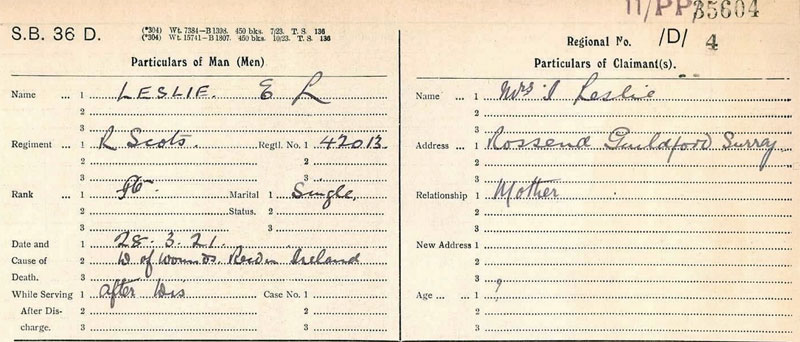 11/PP/35604
S.B. 36 D.
(*304) Wt. 7384—B1398. 450 bks. 7/23. T. S. 136
(*304) Wt. 15741—B1807. 450 bks. 10/23. T. S. 136
Regional No. /D/ 4
Particulars of Man (Men)
Particulars of Claimant(s).
Name ... 1 LESLIE. E L
2
3
Name ... 1 Mrs I Leslie
2
3
Regiment ... 1 R Scots. Regtl. No. 1 42013.
2 2
3 3
Address ... 1 Rossend Guildford Surry
2
3
Rank ... 1 Marital 1 Single,
2 Status. 2
3 3
Relationship 1 Mother
2
3
Date and 1 28. 3. 21.
Cause of 2 D of wounds. Recd in Ireland
Death. 3
New Address 1
2
3
While Serving 1 after Dis Case No. 1
After Dis- 2 2
charge. 3 3
Age ... ... 1 ?
2
3